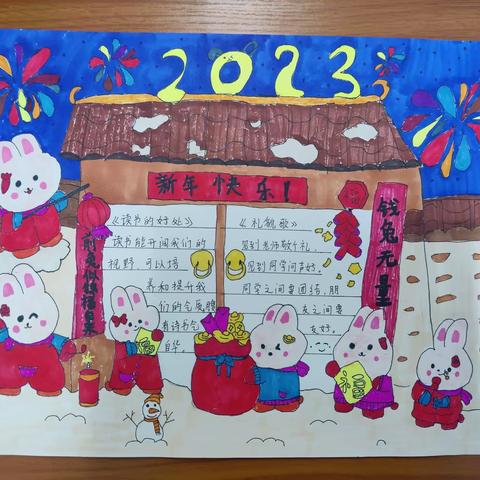 2023
新年快乐!
钱兔无量
《读书的好处》
读书能开阔我们的
视野,可以培
养和提升我
们的气质,腹
有诗书气
自华。
《礼貌歌》
见到老师敬个礼,
见到同学问声好。
同学之间要团结,朋
友之间要
友好。
福